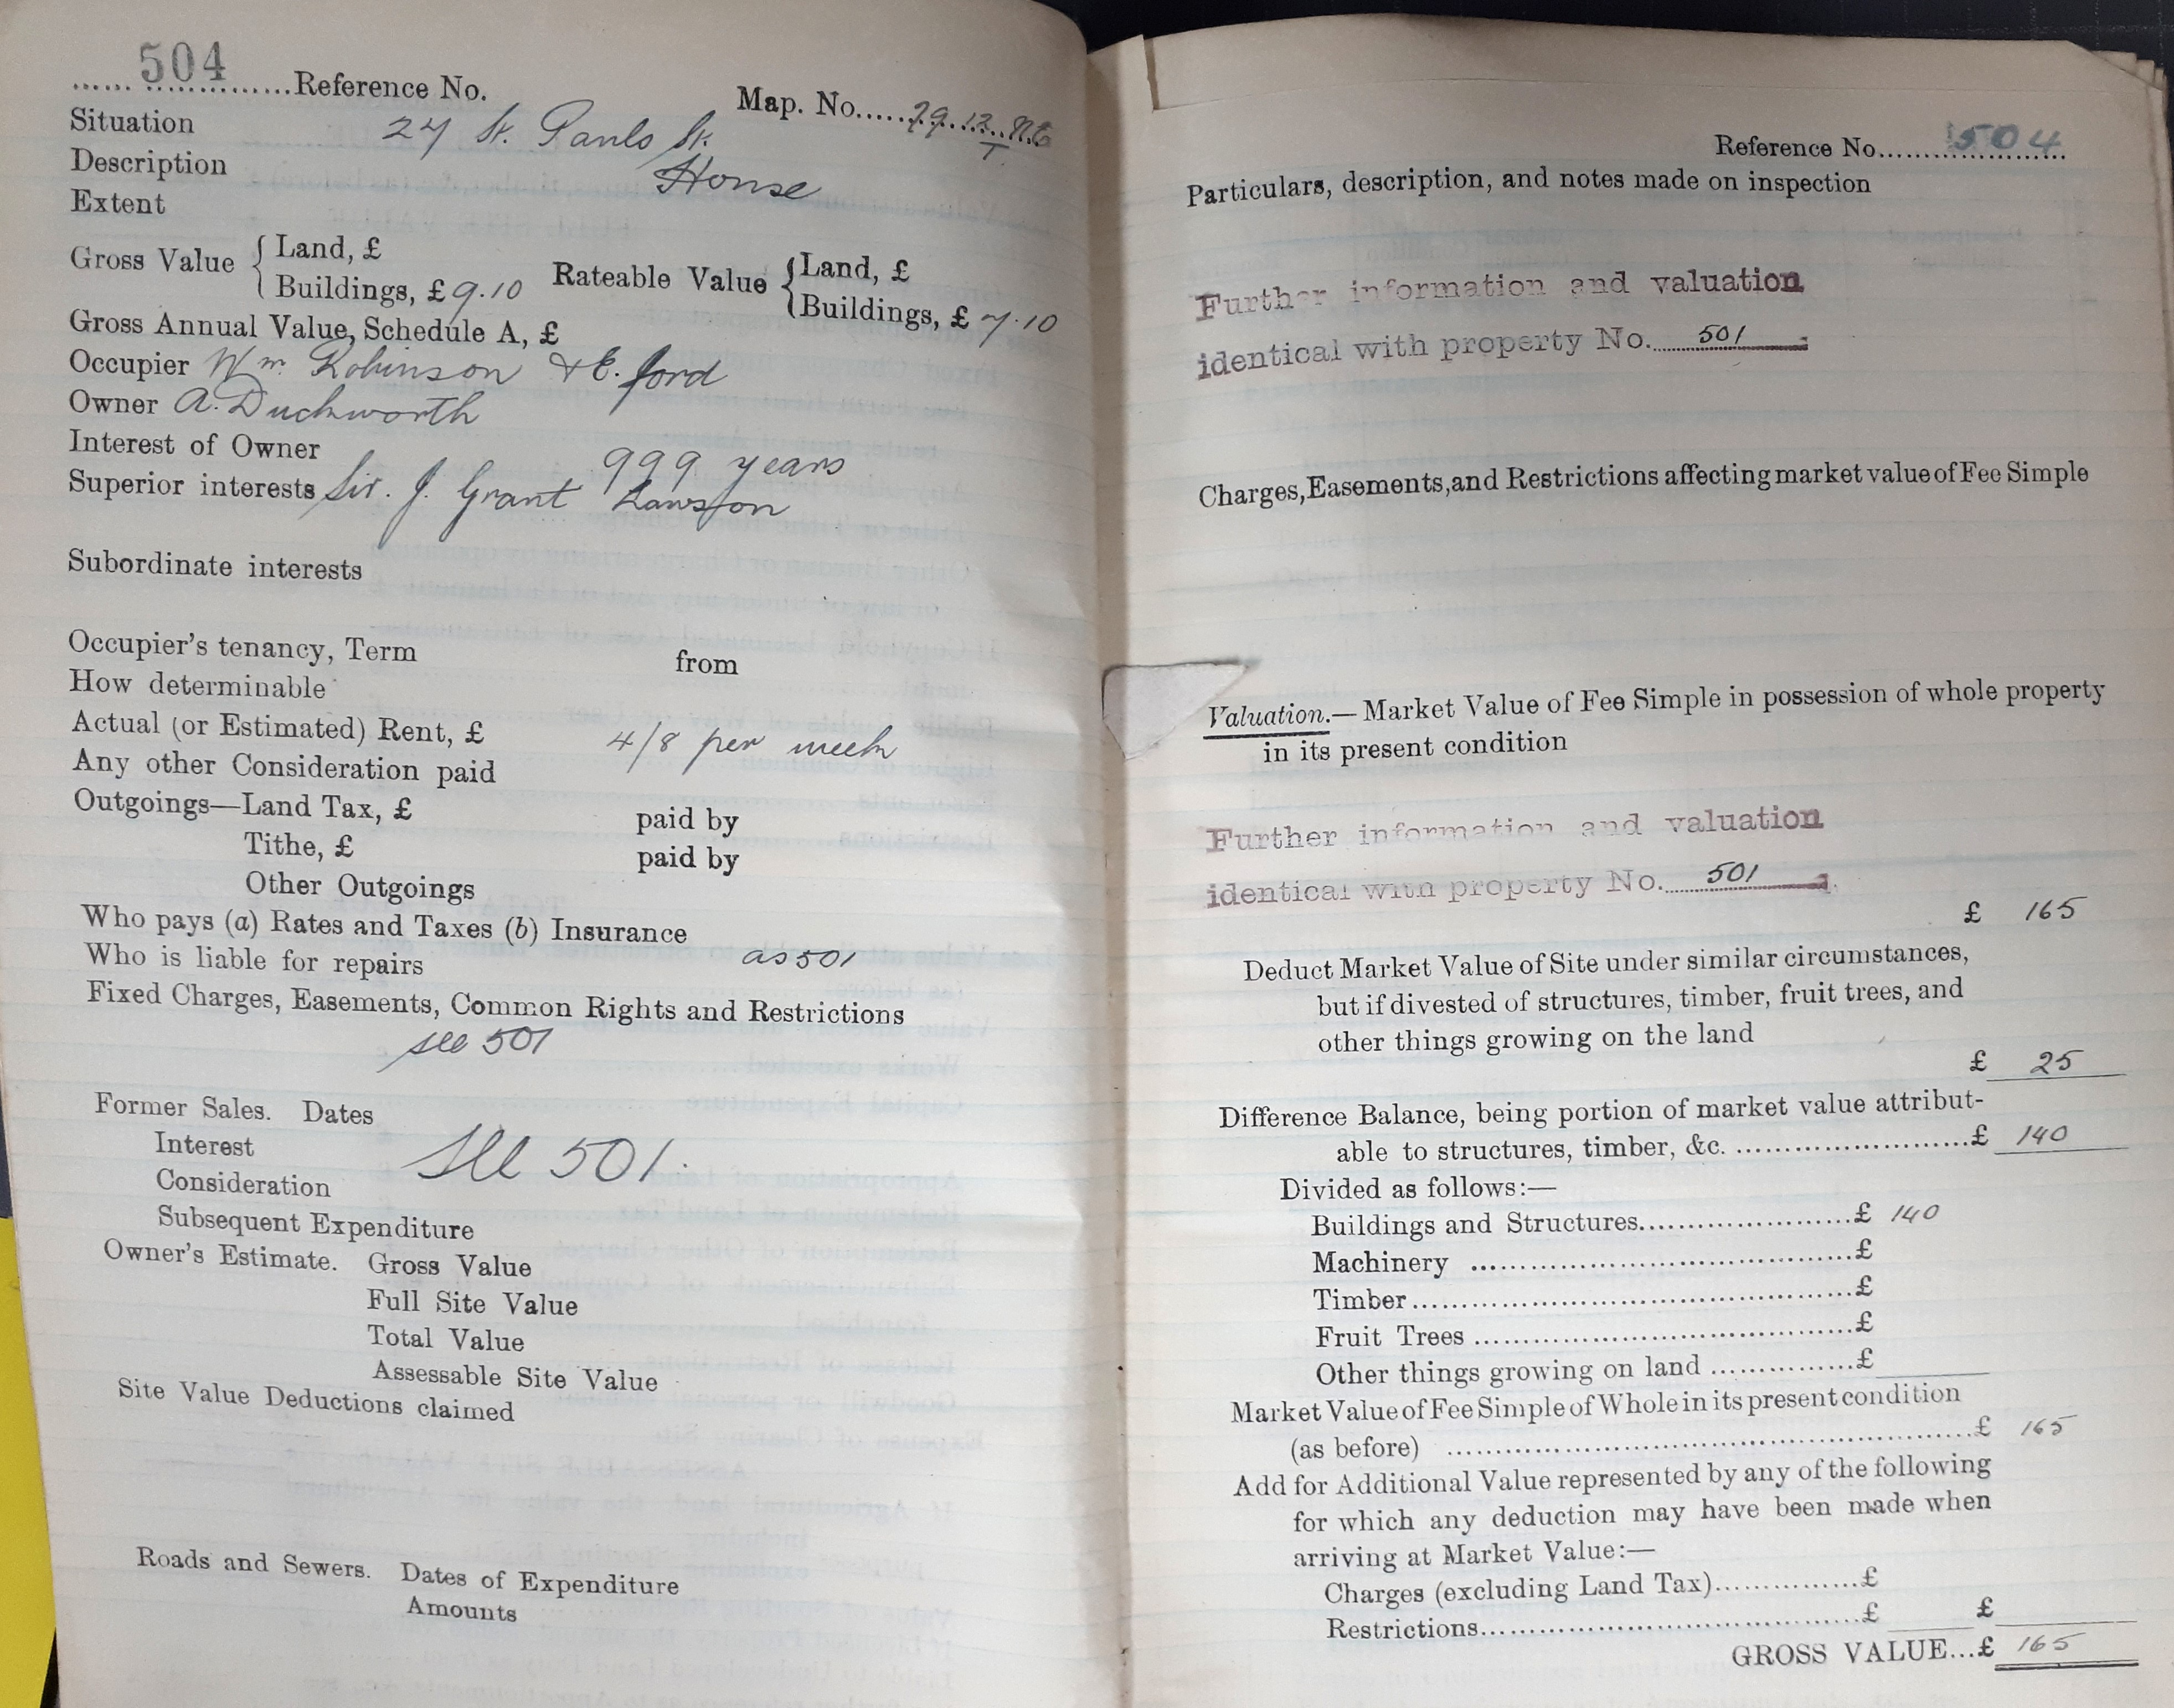 504
Reference No.
Map. No. 29.12. N.E.
T
Situation 24 St. Pauls St.
Description House
Extent
Gross Value { Land, £
Buildings, £ 9.10
Rateable Value { Land, £
Buildings, £ 7.10
Gross Annual Value, Schedule A, £
Occupier Wm. Robinson & E. Ford
Owner A. Duckworth
Interest of Owner 999 years
Superior interests Sir. J. Grant Lawson
Subordinate interests
Occupier's tenancy, Term from
How determinable
Actual (or Estimated) Rent, £ 4/8 per week
Any other Consideration paid
Outgoings—Land Tax, £ paid by
Tithe, £ paid by
Other Outgoings
Who pays (a) Rates and Taxes (b) Insurance
Who is liable for repairs as 501
Fixed Charges, Easements, Common Rights and Restrictions
see 501
Former Sales. Dates
Interest
see 501.
Consideration
Subsequent Expenditure
Owner's Estimate. Gross Value
Full Site Value
Total Value
Assessable Site Value
Site Value Deductions claimed
Roads and Sewers. Dates of Expenditure
Amounts
Reference No. 504
Particulars, description, and notes made on inspection
Further information and valuation
identical with property No. 501
Charges, Easements, and Restrictions affecting market value of Fee Simple
Valuation.— Market Value of Fee Simple in possession of whole property
in its present condition
Further information and valuation
identical with property No. 501
£ 165
Deduct Market Value of Site under similar circumstances,
but if divested of structures, timber, fruit trees, and
other things growing on the land
£ 25
Difference Balance, being portion of market value attribut-
able to structures, timber, &c. £ 140
Divided as follows:—
Buildings and Structures £ 140
Machinery £
Timber £
Fruit Trees £
Other things growing on land £
Market Value of Fee Simple of Whole in its present condition
(as before) £ 165
Add for Additional Value represented by any of the following
for which any deduction may have been made when
arriving at Market Value:—
Charges (excluding Land Tax) £
Restrictions £ £
GROSS VALUE...£ 165